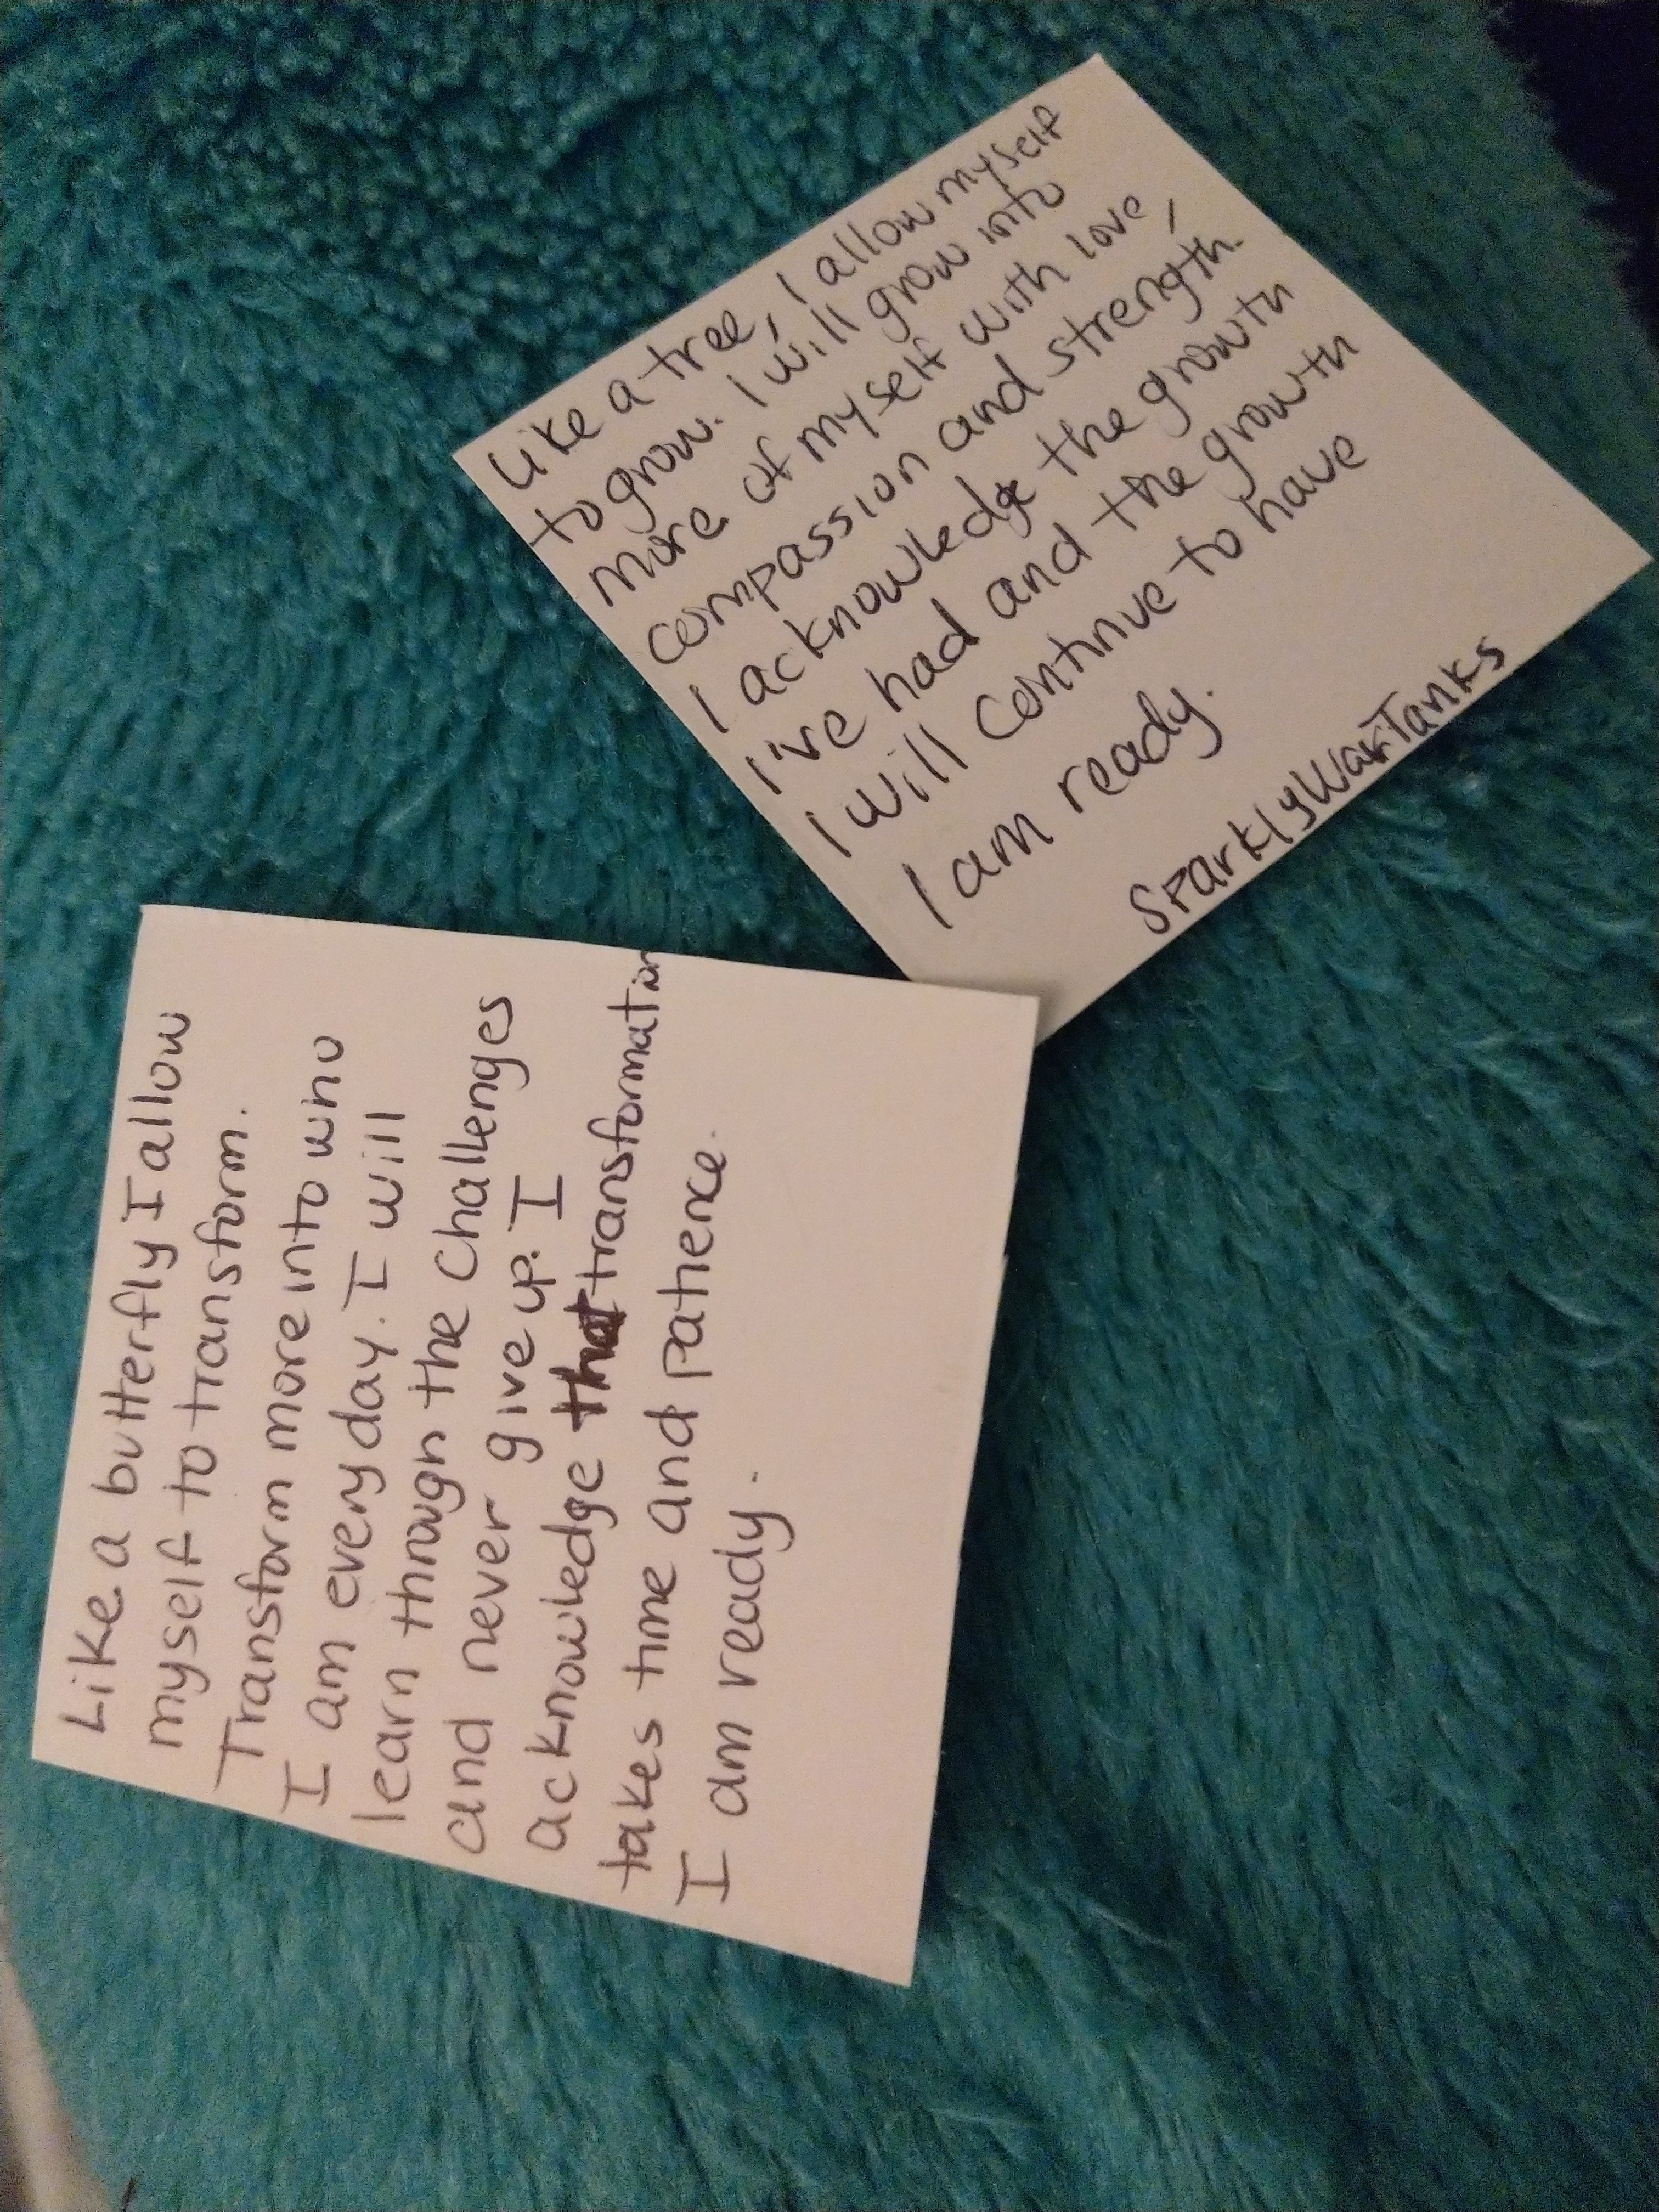 Like a tree, I allow myself
to grow. I will grow into
more of myself with love,
compassion and strength.
I acknowledge the growth
I've had and the growth
I will continue to have
I am ready.
SparklyWarTanks
Like a butterfly I allow
myself to transform.
Transform more into who
I am every day. I will
learn through the challenges
and never give up. I
acknowledge that transformation
takes time and patience.
I am ready.